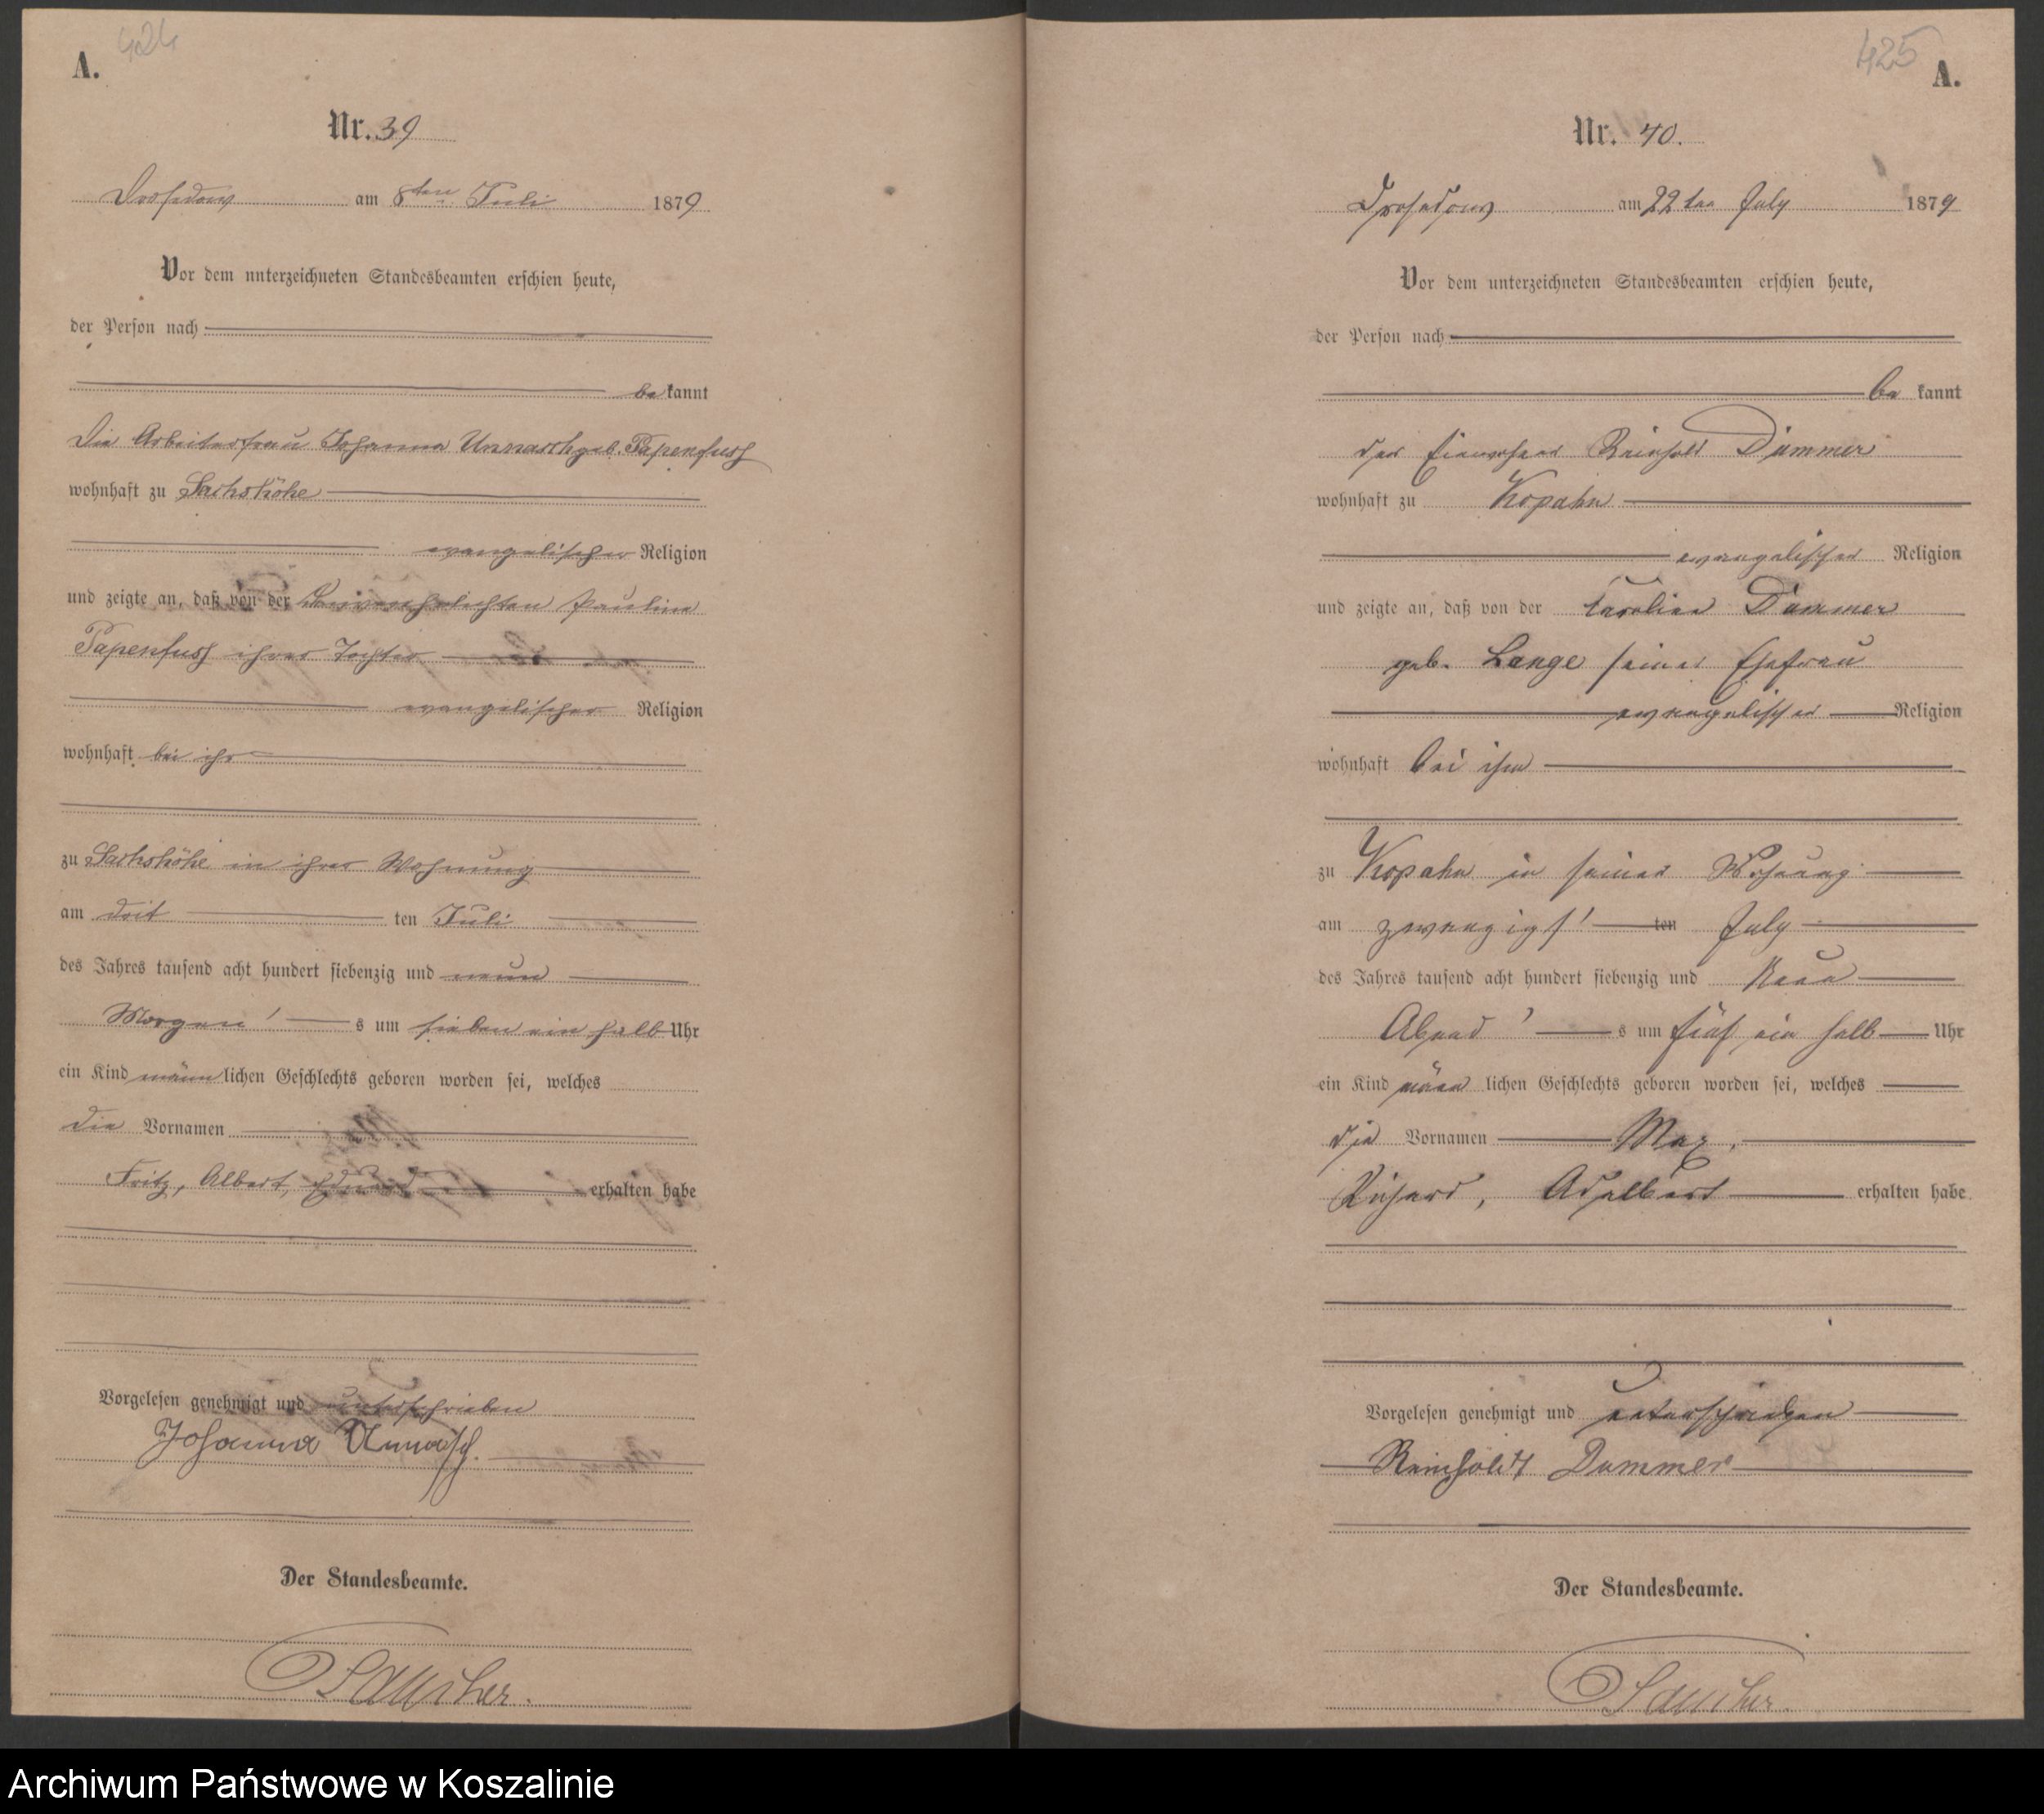 424
A.
Nr. 39
Drosedow am 8ten Juli 1879
Vor dem unterzeichneten Standesbeamten erschien heute,
der Person nach
bekannt
Die Arbeiterfrau Johanna Unnasch geb. Papenfuss
wohnhaft zu Sachshöhe
evangelischer Religion
und zeigte an, daß von der unverehelichten Pauline
Papenfuss ihrer Tochter
evangelischer Religion
wohnhaft bei ihr
zu Sachshöhe in ihrer Wohnung
am drit ten Juli
des Jahres tausend acht hundert siebenzig und neun
Morgen s um sieben ein halb Uhr
ein Kind männlichen Geschlechts geboren worden sei, welches
die Vornamen
Fritz, Albert, Eduard erhalten habe
Vorgelesen genehmigt und unterschrieben
Johanna Unnasch.
Der Standesbeamte.
425
A.
Nr. 40.
Drosedow am 22ten July 1879
Vor dem unterzeichneten Standesbeamten erschien heute,
der Person nach
be kannt
der Einwohner Reinhold Dummer
wohnhaft zu Kopahn
evangelischer Religion
und zeigte an, daß von der Caroline Dummer
geb. Lange seiner Ehefrau
evangelischer Religion
wohnhaft bei ihm
zu Kopahn in seiner Wohnung
am zwanzigs ten July
des Jahres tausend acht hundert siebenzig und Neun
Abend s um fünf ein halb Uhr
ein Kind männ lichen Geschlechts geboren worden sei, welches
die Vornamen Max,
Richard, Adalbert erhalten habe
Vorgelesen genehmigt und unterschrieben
Reinholdt Dummer
Der Standesbeamte.
Archiwum Państwowe w Koszalinie